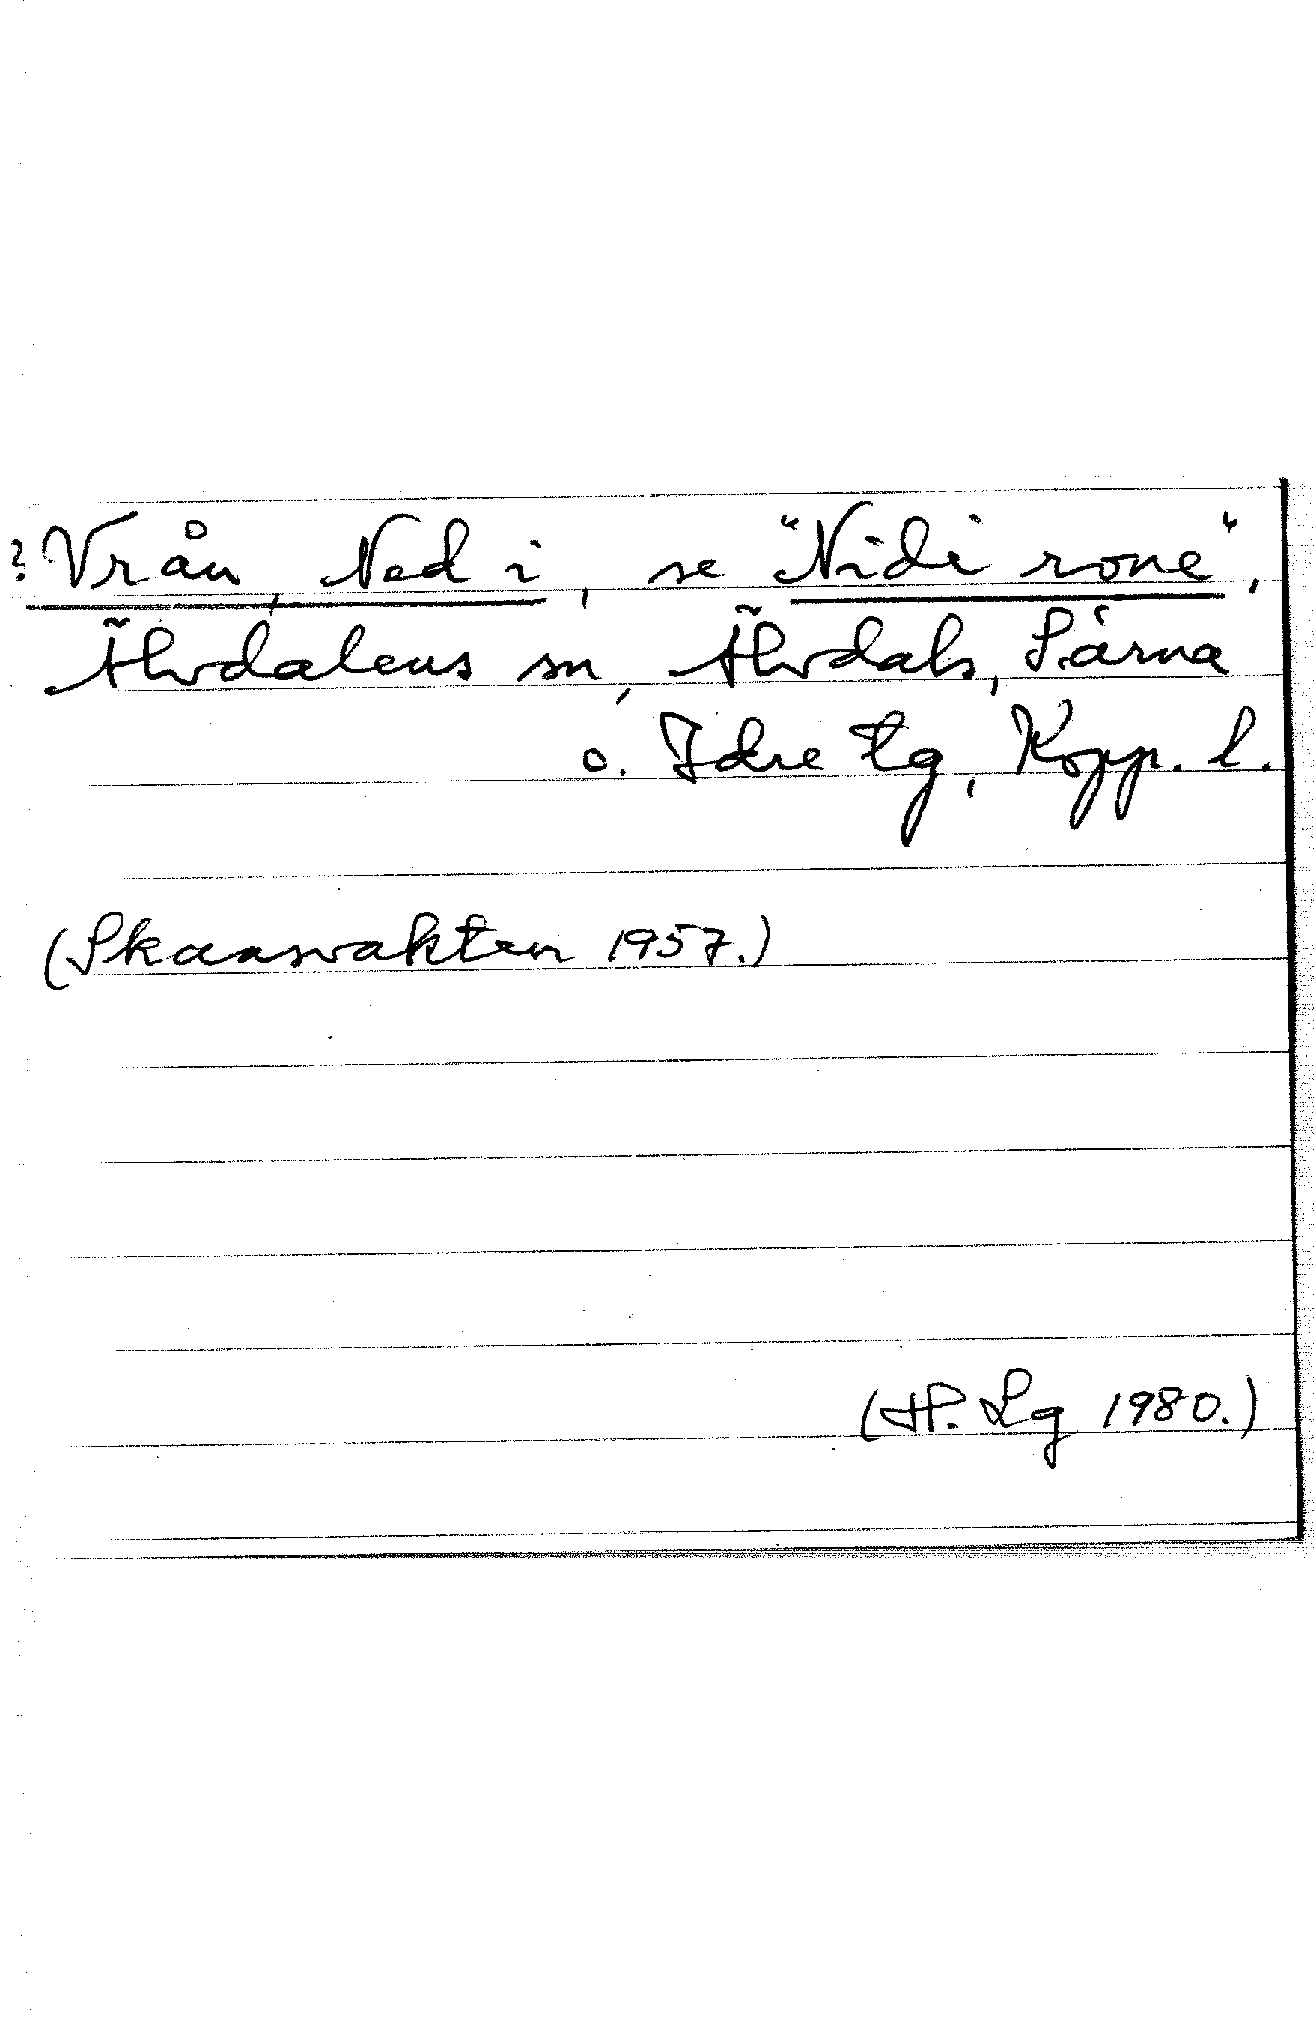 ? Vrån, Ned i, se "Nidi rone",
Älvdalens sn, Älvdals, Särna
o. Idre tg, Kopp. l.
(Skansvakten 1957.)
(H. Lg 1980.)